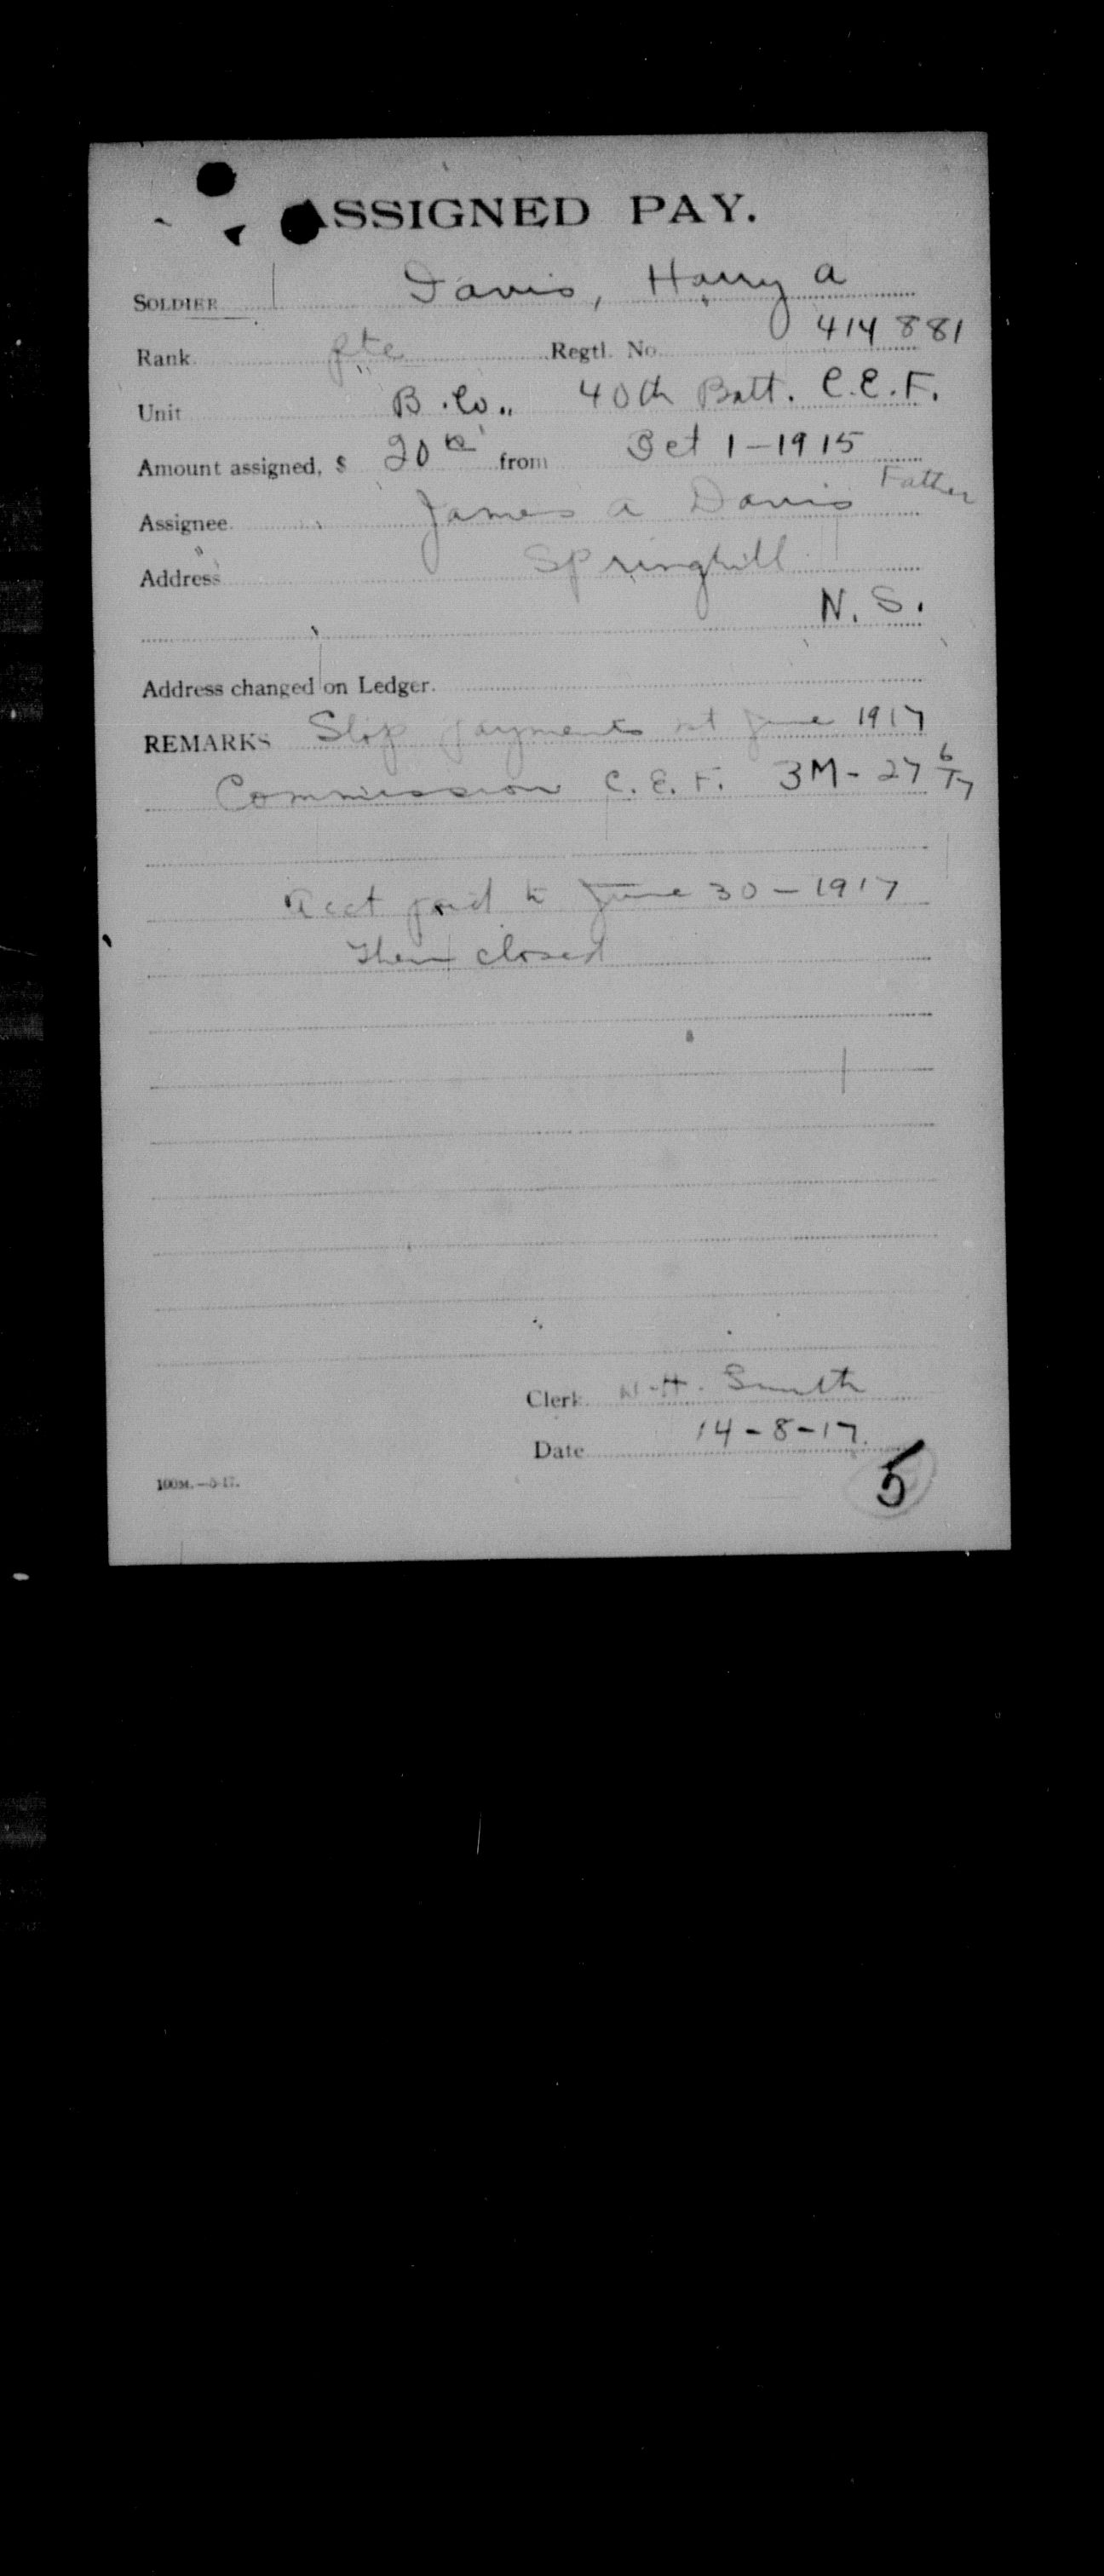 ASSIGNED PAY.
SOLDIER Davis, Harry A
Rank Pte Regtl. No. 414881
Unit B. Co., 40th Batt. C.E.F.
Amount assigned, $ 20 00 from Oct 1-1915
Assignee James A Davis Father
Address Springhill
N.S.
Address changed on Ledger.
REMARKS Stop payments June 1917
Commission C.E.F. 3M-27 6/17
Acct paid to June 30-1917
Then closed
Clerk H. Smith
Date 14-8-17.
5
100M.—5-17.